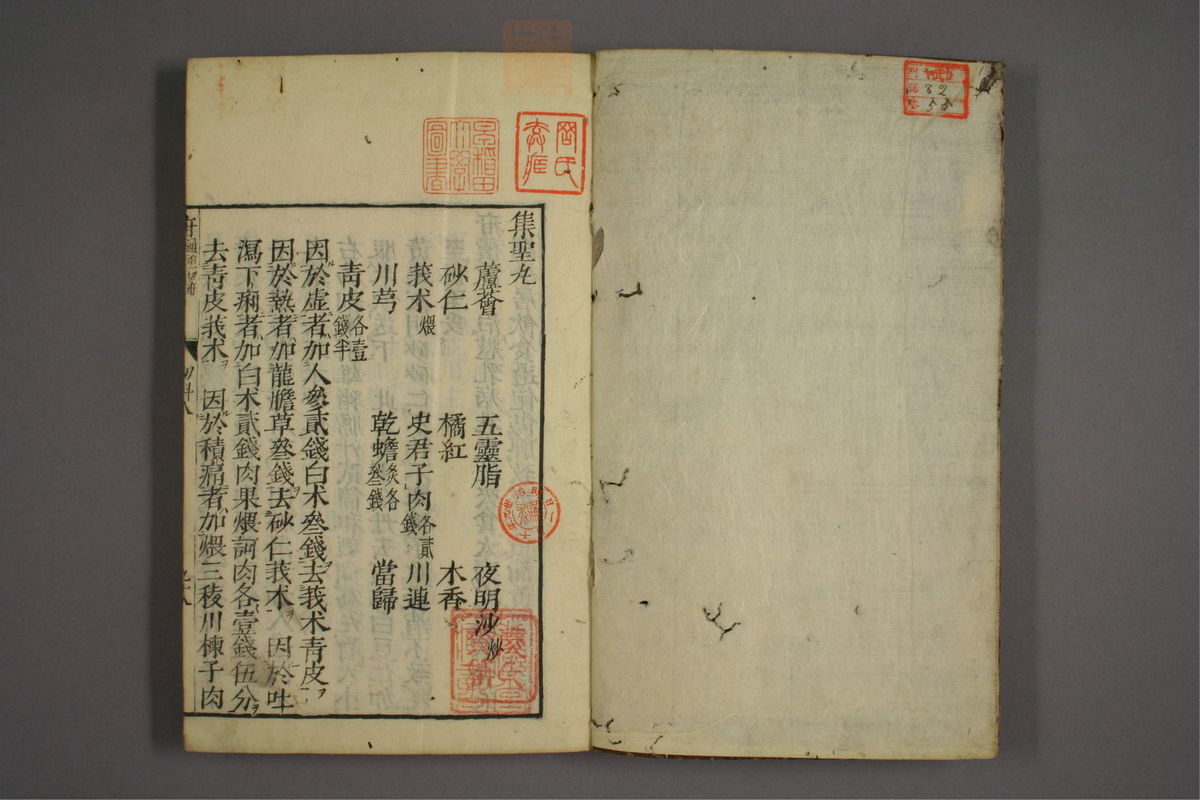 集聖丸
蘆薈 五靈脂 夜明沙炒
砂仁 橘紅 木香
莪朮煨 史君子肉各貳錢 川連
川芎 乾蟾炙各叄錢 當歸
青皮各壹錢半
因於虛者加人參貳錢白朮叄錢去莪朮青皮ヲ
因於熱者加龍膽草叄錢去砂仁莪朮ヲ 因於吐
瀉下痢者加白朮貳錢肉果煨訶肉各壹錢伍分ヲ
去青皮莪朮ヲ 因於積痛者加煨三稜川楝子肉
早稻田大學圖書
岡氏
82
58